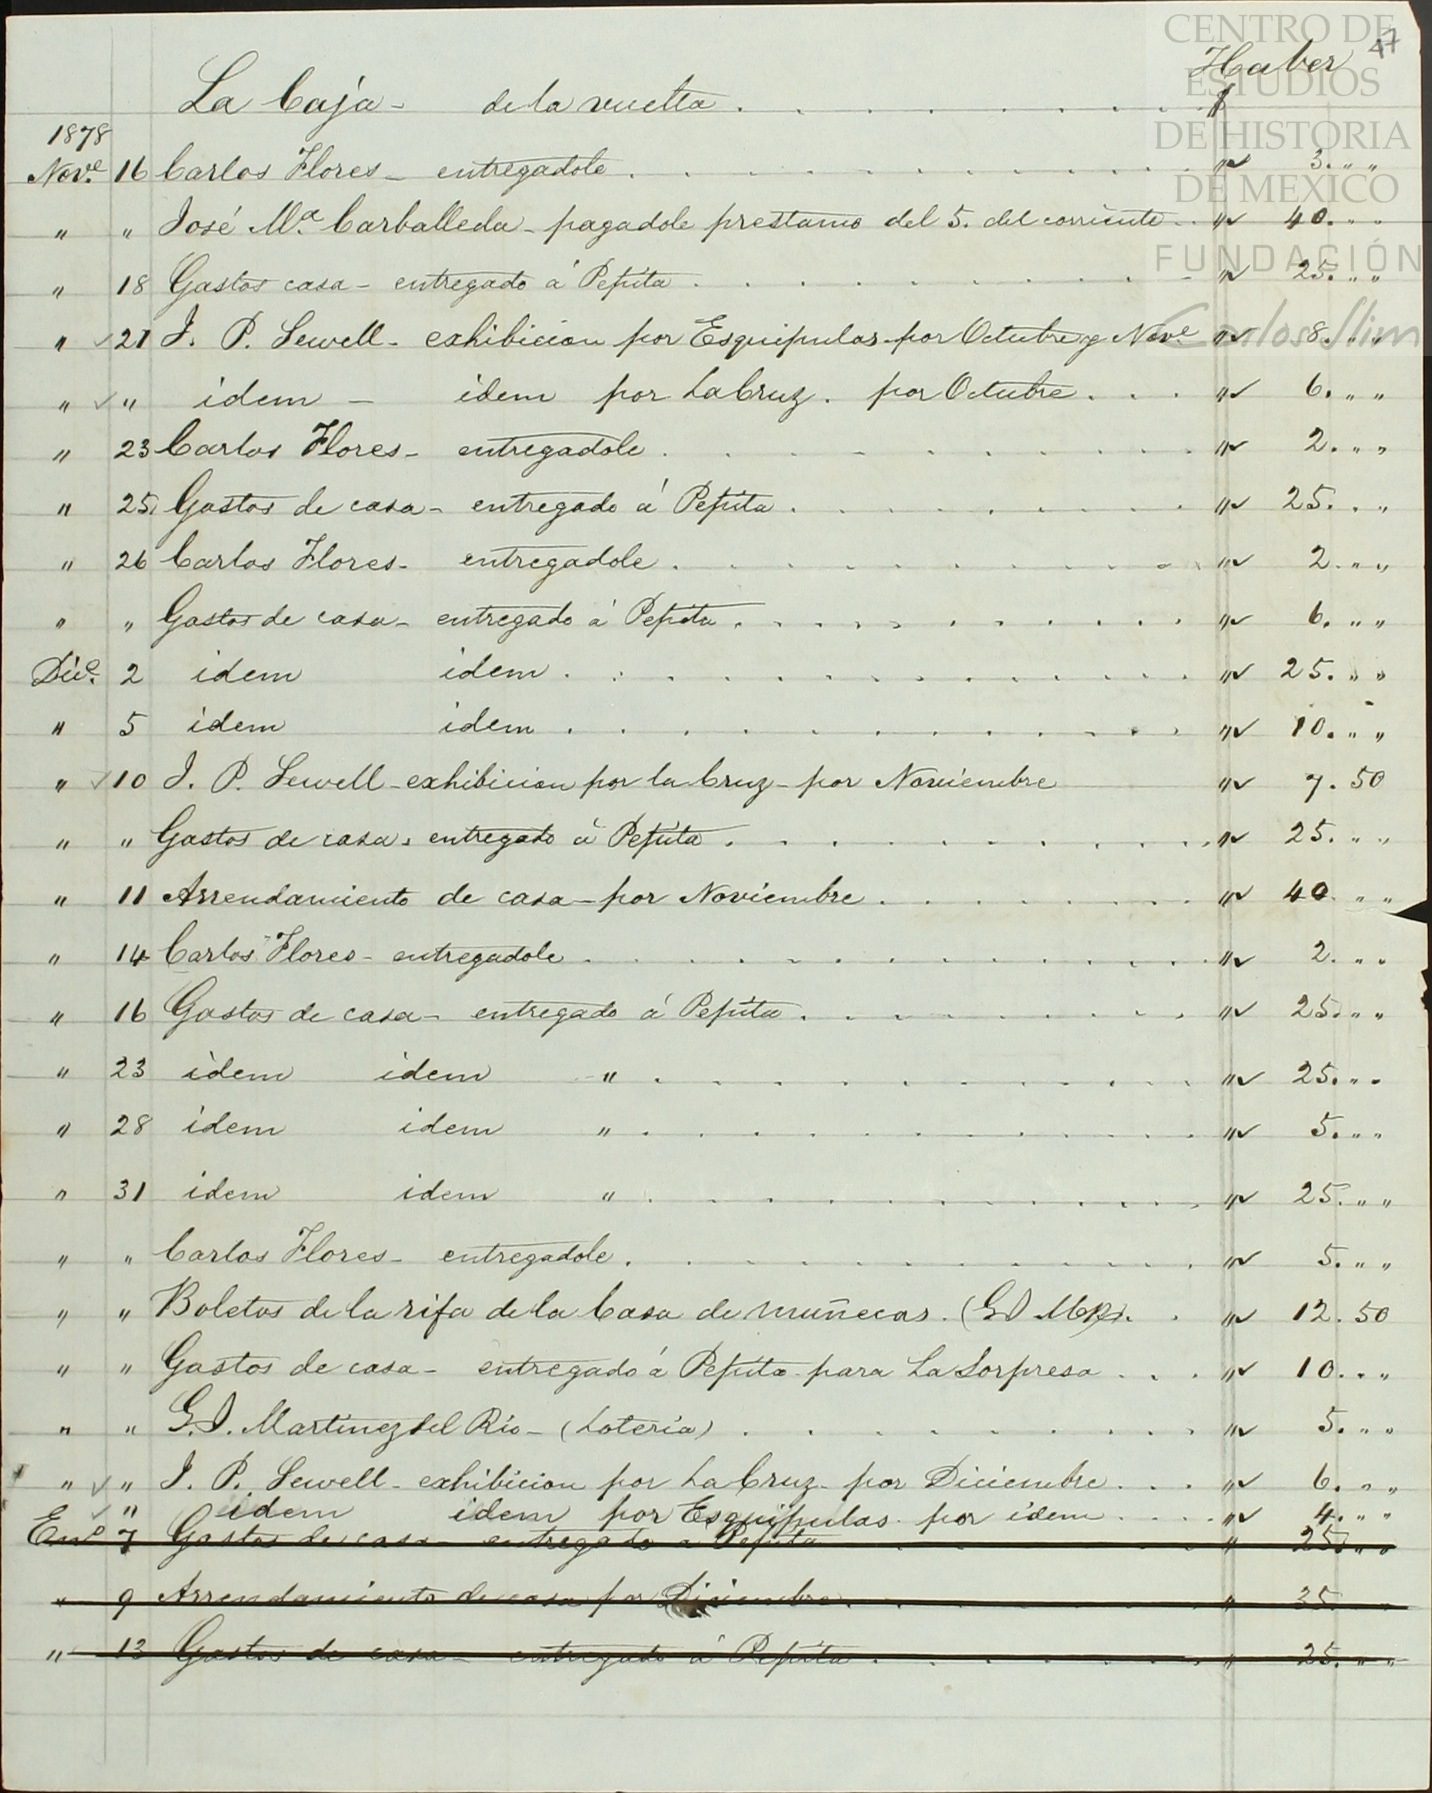 47
Haber
La Caja - de la vuelta . . . . . . . . $
1878
Nove. 16 Carlos Flores - entregadole . . . . . . . . " 3. " "
" " José Ma. Carballeda - pagadole prestamo del 5. del corriente . . " 40. " "
" 18 Gastos casa - entregado á Pepita . . . . . . . . " 25. " "
" 21 J. P. Sewell - exhibicion por Esquipulas por Octubre y Nove " 8. " "
" " idem - idem por La Cruz. por Octubre . . . " 6. " "
" 23 Carlos Flores - entregadole . . . . . . . . " 2. " "
" 25 Gastos de casa - entregado á Pepita . . . . . . . . " 25. " "
" 26 Carlos Flores - entregadole . . . . . . . . " 2. " "
" " Gastos de casa - entregado á Pepita . . . . . . . . " 6. " "
Dice. 2 idem idem . . . . . . . . " 25. " "
" 5 idem idem . . . . . . . . " 10. " "
" 10 J. P. Sewell - exhibicion por la Cruz - por Noviembre " 7. 50
" " Gastos de casa. entregado á Pepita . . . . . . . . " 25. " "
" 11 Arrendamiento de casa - por Noviembre . . . . . . . . " 40 " "
" 14 Carlos Flores - entregadole . . . . . . . . " 2. " "
" 16 Gastos de casa - entregado á Pepita . . . . . . . . " 25. " "
" 23 idem idem " . . . . . . . . " 25. " "
" 28 idem idem " . . . . . . . . " 5. " "
" 31 idem idem " . . . . . . . . " 25. " "
" " Carlos Flores - entregadole . . . . . . . . " 5. " "
" " Boletos de la rifa de la Casa de muñecas. (G I MdelR). . " 12. 50
" " Gastos de casa - entregado á Pepita para La Sorpresa . . . " 10. " "
" " G. I. Martinez del Rio - (Loteria) . . . . . . . . " 5. " "
" " J. P. Sewell - exhibicion por La Cruz - por Diciembre . . . " 6. " "
" idem idem por Esquipulas. por idem . . . . " 4. " "
Eno. 7 Gastos de casa - entregado a Pepita . . . . " 25. " "
" 9 Arrendamiento de casa por Diciembre . . . . " 35 "
" 13 Gastos de casa - entregado á Pepita . . . . . . . . " 25. " "
CENTRO DE
ESTUDIOS
DE HISTORIA
DE MEXICO
FUNDACIÓN
Carlos Slim